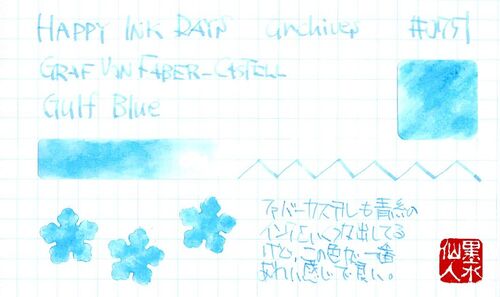 HAPPY INK DAYS archives #0751
GRAF VON FABER-CASTELL
Gulf Blue
ファバーカステルも青系の
インクをいくつか出してる
けど、この色が一番
きれいな感じで良い。
墨水
仙人